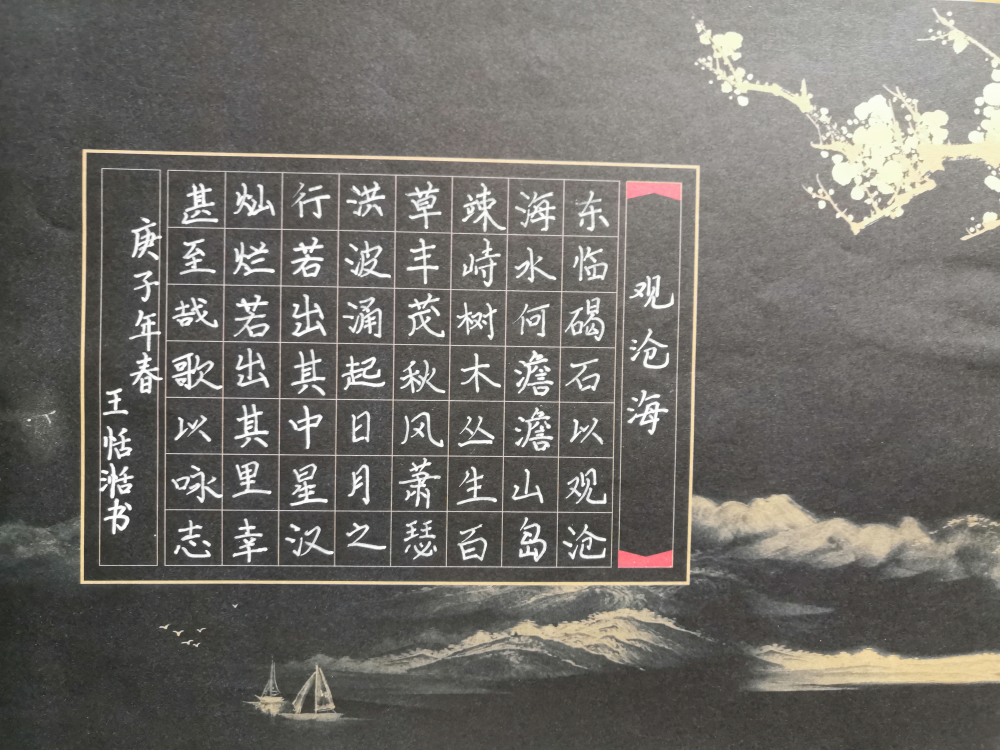 观沧海
东临碣石以观沧
海水何澹澹山岛
竦峙树木丛生百
草丰茂秋风萧瑟
洪波涌起日月之
行若出其中星汉
灿烂若出其里幸
甚至哉歌以咏志
庚子年春
王恬湉书